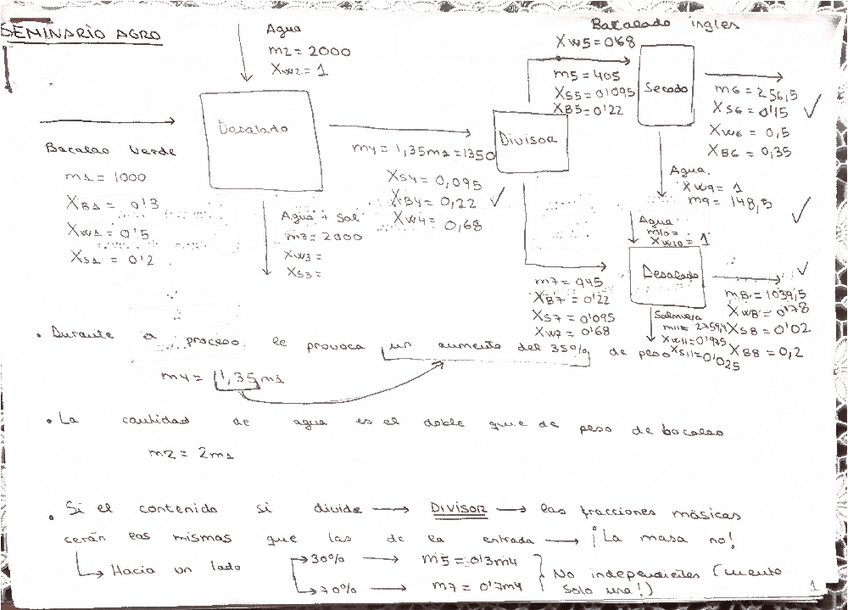 SEMINARIO AGRO
Agua
m2 = 2000
Xw2 = 1
Bacalado ingles
Xw5 = 0'68
m5 = 405
Xs5 = 0'095
XB5 = 0'22
Secado
m6 = 256,5
Xs6 = 0'15
Xw6 = 0,5
XB6 = 0,35
Bacalado
Divisor
Bacalao verde
m1 = 1000
XB1 = 0'3
Xw1 = 0'5
Xs1 = 0'2
m4 = 1,35m1 = 1350
Xs4 = 0,095
XB4 = 0,22
Xw4 = 0,68
Agua + sal
m3 = 2000
Xw3 =
Xs3 =
Agua
Xw9 = 1
m9 = 148,5
Agua
m10 =
Xw10 = 1
Desalado
m7 = 945
XB7 = 0'22
Xs7 = 0'095
Xw7 = 0'68
m8 = 1039,5
Xw8 = 0'78
Xs8 = 0'02
XB8 = 0,2
Salmuera
m11 = 2759,4
Xw11 = 0'975
Xs11 = 0'025
• Durante el proceso le provoca un aumento del 35% de peso
m4 = 1,35m1
• La cantidad de agua es el doble que de peso de bacalao
m2 = 2m1
• Si el contenido si divide → DIVISOR → las fracciones másicas
serán las mismas que las de la entrada → ¡La masa no!
Hacia un lado
→ 30% → m5 = 0'3m4
→ 70% → m7 = 0'7m4
No independientes (cuento
solo una!)
1